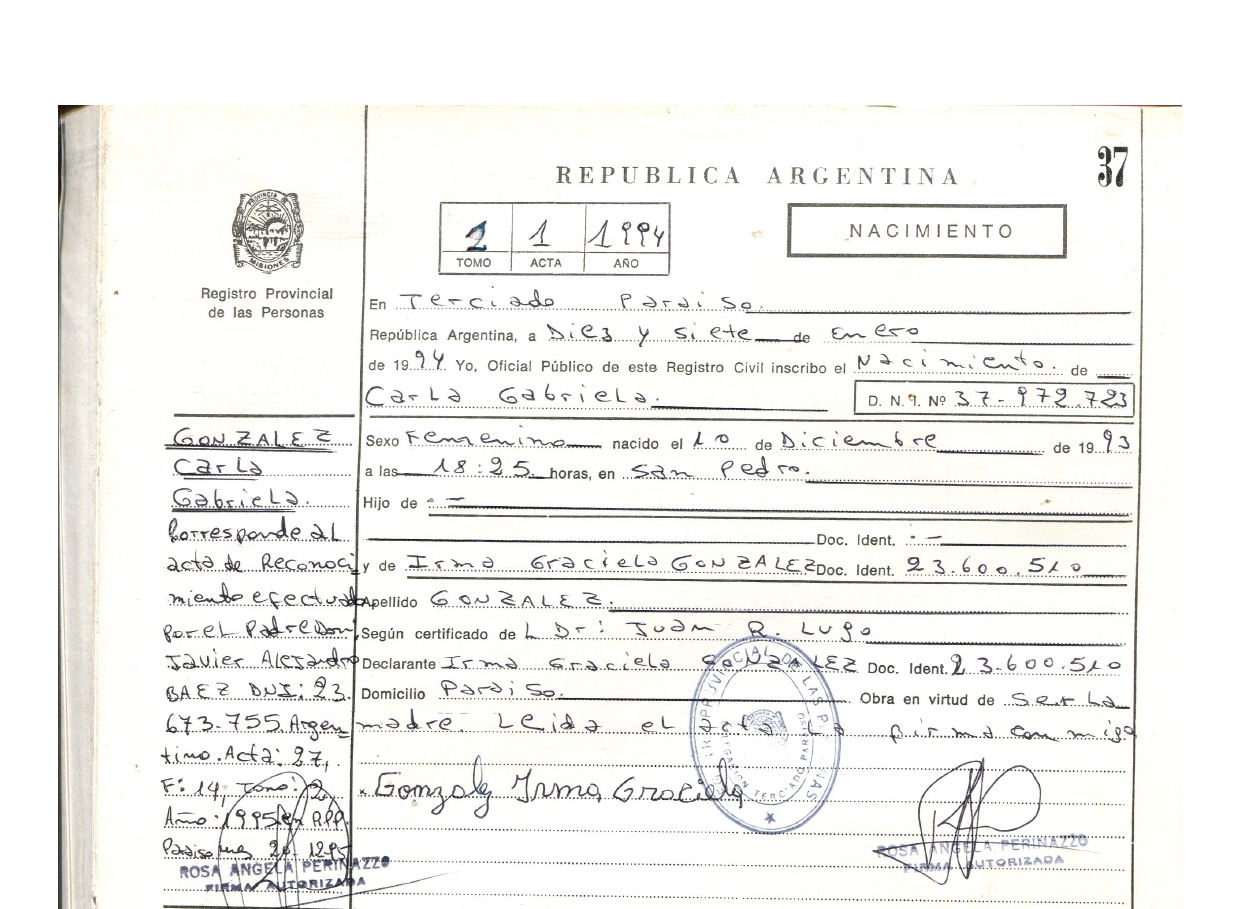 37
REPUBLICA ARGENTINA
PROVINCIA
MISIONES
Registro Provincial
de las Personas
2 1 1994
TOMO ACTA AÑO
NACIMIENTO
En Terciado Paraiso.
República Argentina, a Diez y siete de Enero
de 1994 Yo, Oficial Público de este Registro Civil inscribo el Nacimiento. de
Carla Gabriela. D. N. I. Nº 37-972.723
Sexo Femenino nacido el 10 de Diciembre de 1993
a las 18:25 horas, en San Pedro.
Hijo de -
Doc. Ident. -
y de Irma Graciela GONZALEZ Doc. Ident. 23.600.510
Apellido GONZALEZ.
Según certificado de L Dr: Juan R. Lugo
Declarante Irma Graciela GONZALEZ Doc. Ident. 23-600.510
Domicilio Paraiso. Obra en virtud de Ser La
madre. Leida el acta La firma conmigo
Gonzalez Irma Graciela
GONZALEZ
Carla
Gabriela.
Corresponde al
acta de Reconoci
miento efectuado
por el Padre Don
Javier Alejandro
BAEZ DNI: 23.
673-755. Argen
tino. Acta: 27,
F: 14, Tomo: 2
Año: 1995 en
Paraiso
ROSA ANGELA PERINAZZO
FIRMA AUTORIZADA
ROSA ANGELA PERINAZZO
FIRMA AUTORIZADA